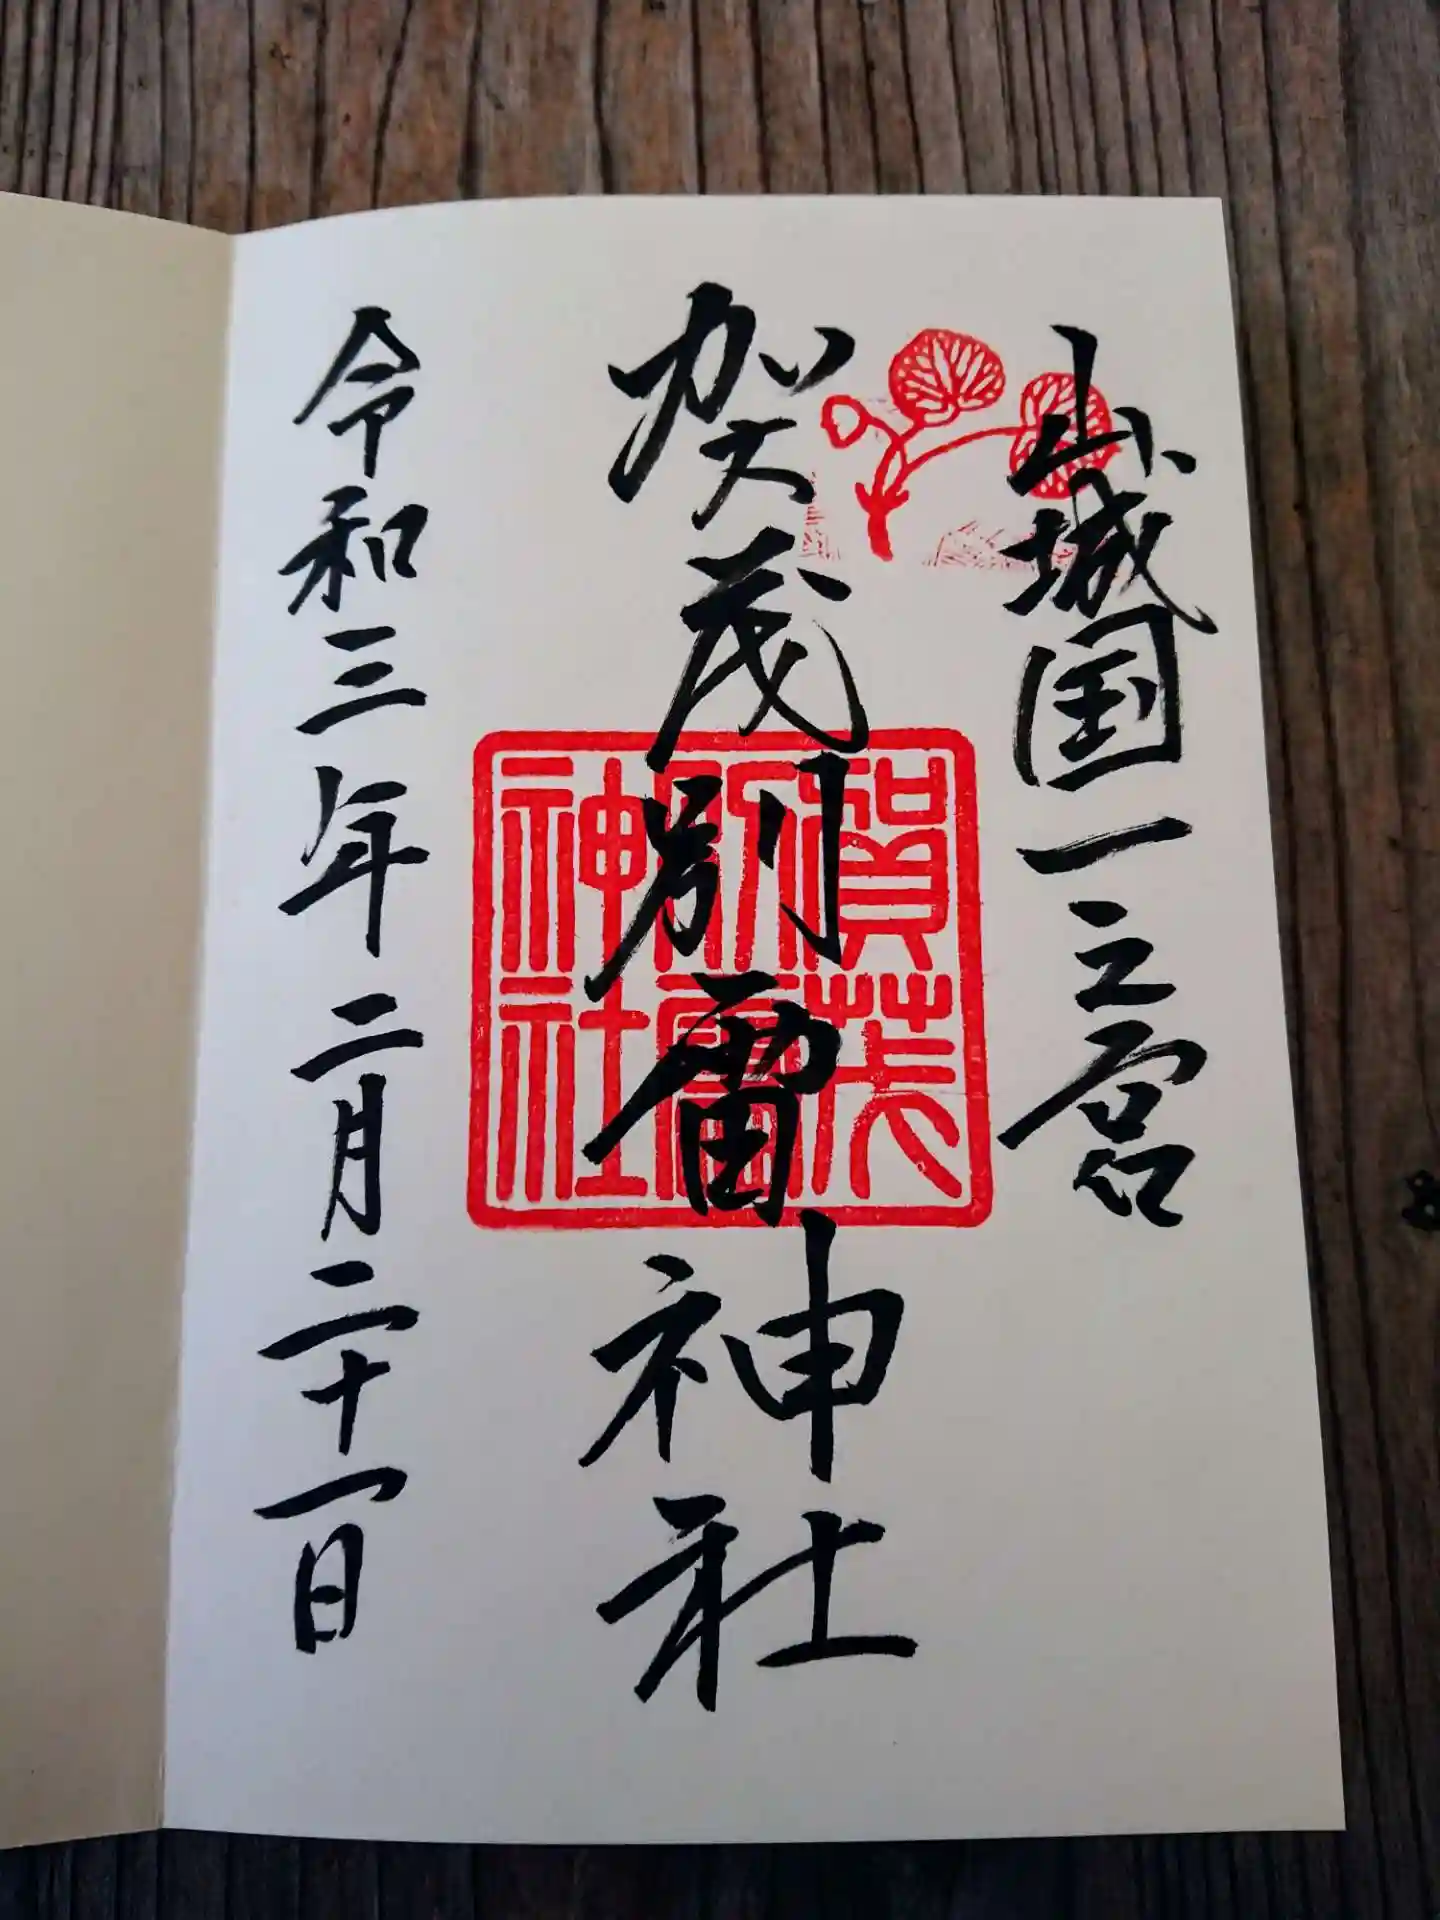 山城国一之宮
賀茂別雷神社
賀茂
別雷
神社
令和三年二月二十一日